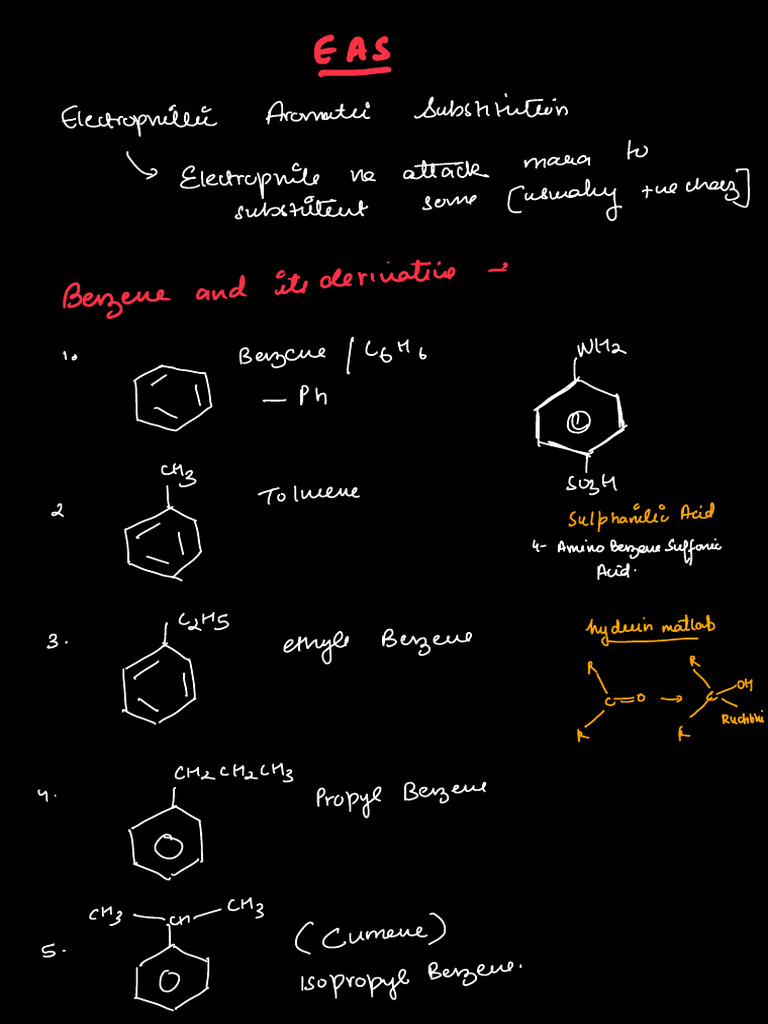 EAS
Electrophillic Aromatic Substitution
Electrophile ne attack maaa to
substitent some [usually +ve charz]
Benzene and its derivative →
1.
Benzene / C6H6
— Ph
NH2
SO3H
Sulphanilic Acid
4- Amino Benzene Sulfonic
Acid.
2
CH3
Toluene
3.
C2H5
ethyle Benzene
matlab
R
C=O → C OH
R
R
R
4.
CH2CH2CH3
Propyl Benzene
5.
CH3 — CH — CH3
(Cumene)
Isopropyl Benzene.